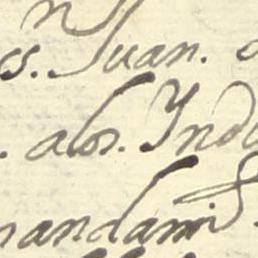 ss. Juan.
. alos. Ynd
mandami